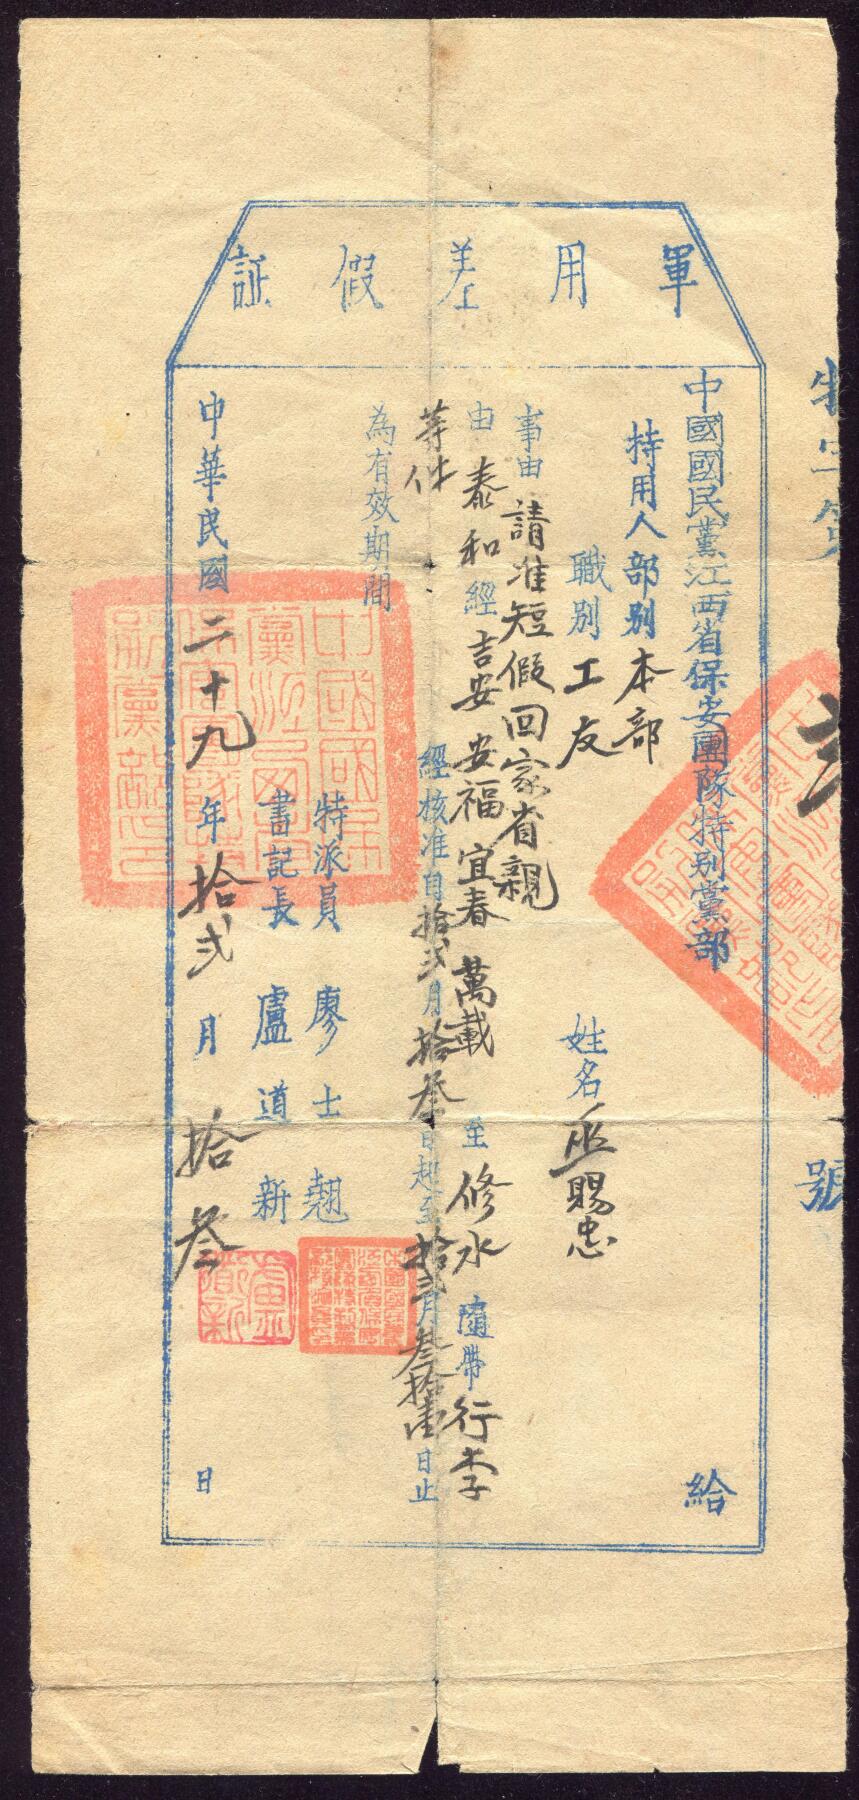 軍用差假証
中國國民黨江西省保安團隊特別黨部 給
持用人部別本部
職別工友 姓名巫賜忠
事由請准短假回家省親
由泰和經吉安安福宜春萬載至修水隨帶行李
等件 經核准自拾弍月拾叁日起至拾弍月叁拾壹日止
為有效期間
特派員 廖士翹
書記長 盧道新
中華民國二十九年拾弍月拾叁日
號